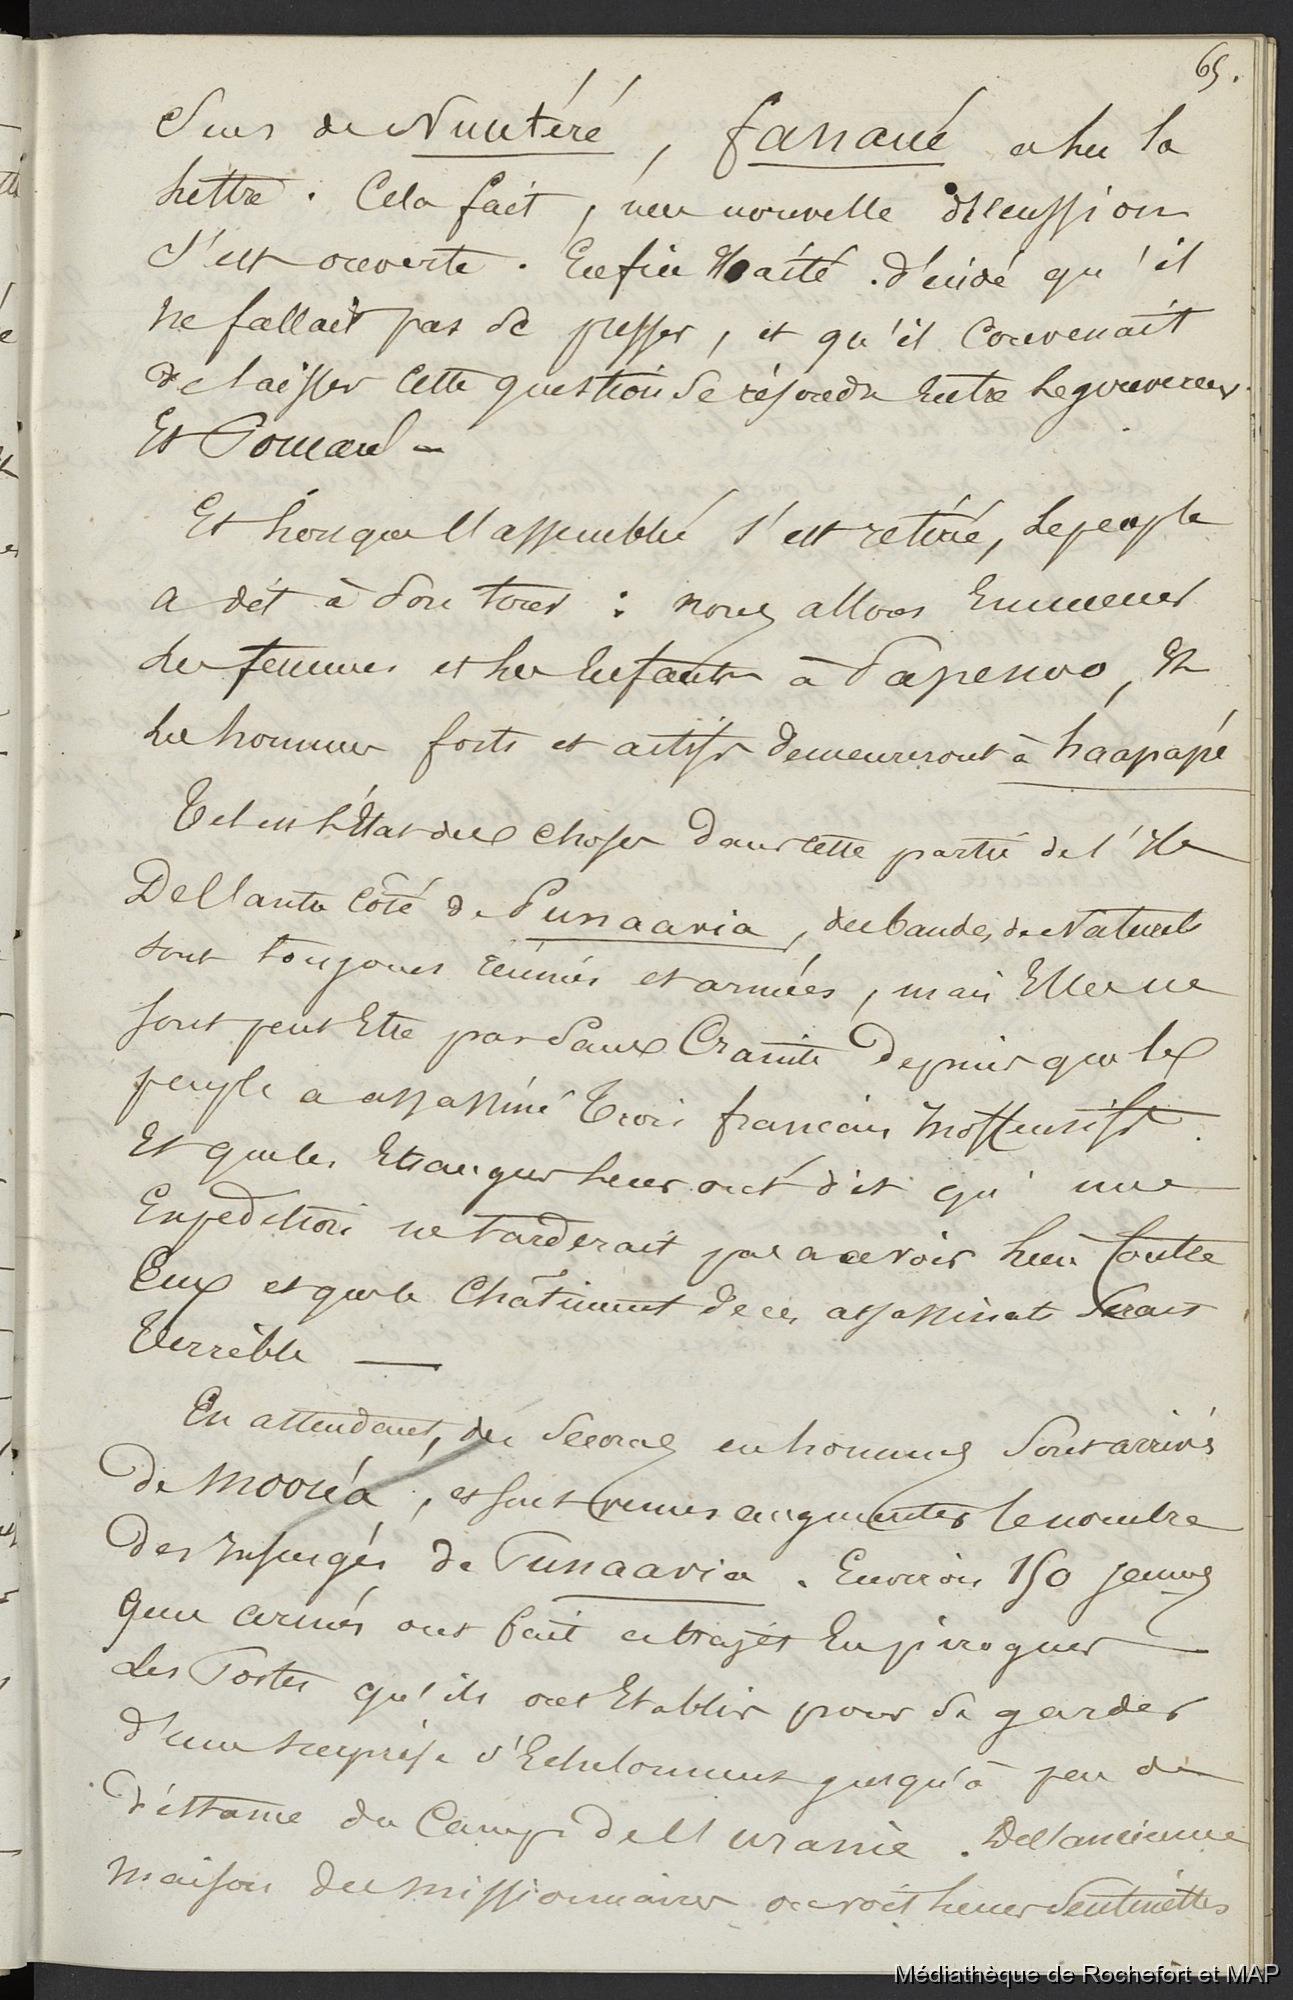 65.
Sur de Nuutéré, fanaué a lu la
lettre. Cela fait, une nouvelle discussion
s'est ouverte. Enfin Haité. décidé qu'il
ne fallait pas se presser, et qu'il convenait
de laisser cette question se résoudre Entre le gouverneur
Et Pomaré –
Et lorsque l'assemblée s'est retiré, le peuple
a dit à son tour : nous allons Emmener
les femmes et les Enfants à Papenoo, Et
les hommes forts et actifs demeureront à háapapé
Tel est l'Etat des choses dans cette partie de l'Ile
De l'autre côté de Punaavia, des bandes de Naturels
sont toujours réunies et armées, mais Elles ne
sont peut Etre pas sans Crainte Depuis que le
peuple a assassiné Trois francais Inoffensifs.
Et que les Etrangers leur ont dit qu'une
Expedition ne tarderait pas a avoir lieu Contre
Eux et que le Châtiment de ces assassinats Serait
Terrible —
En attendant, des Secours en hommes Sont arrivés
De Mooréa, et sont venus augmenter le nombre
Des Insurgés de Punaavia. Environ 150 jeunes
gens armés ont fait ce trajet En pirogues
Les Postes qu'ils ont Etablis pour se garder
d'une surprise s'Echelonnent jusqu'à peu de
distance du Camp De l'Uranie. De l'ancienne
maison des missionnaires on voit leurs Sentinelles
Médiathèque de Rochefort et MAP